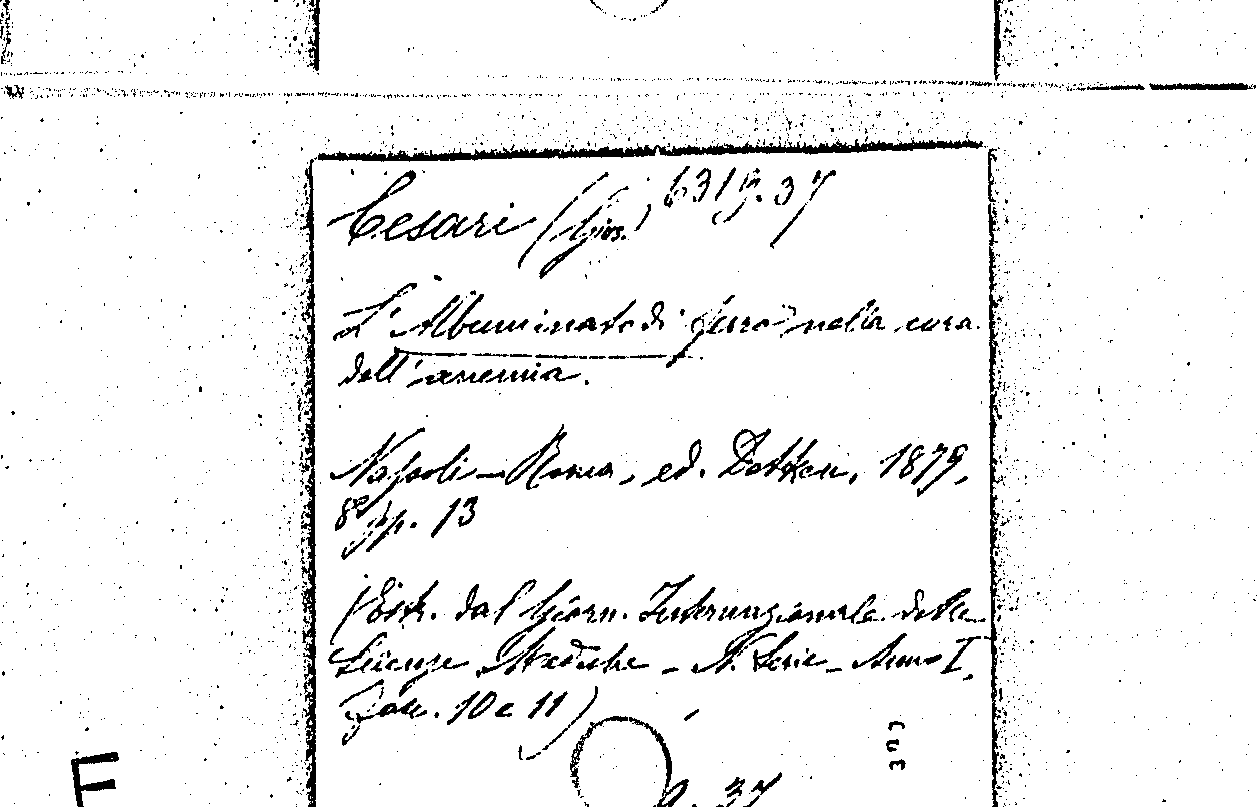 Cesari (Gius.) 631 g. 37
L'Albuminato di ferro nella cura
dell'anemia.
Napoli - Roma, ed. Detken, 1879,
8° pp. 13
(Estr. dal Giorn. Internazionale delle
Scienze Mediche - N. Serie - Anno I,
Fasc. 10 e 11)
g. 37
E